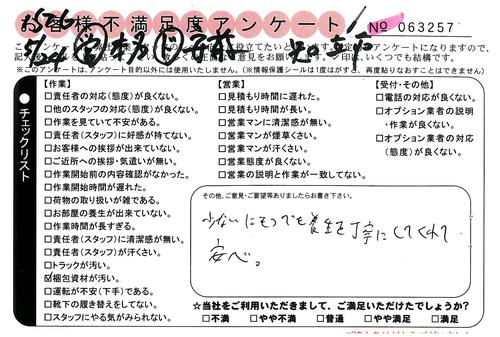 お客様不満足度アンケート
No 063257
※このアンケートは、アンケート目的以外には使用いたしません。(※情報保護シールは1度はがすと、再度貼りなおすことはできません)
チェックリスト
【作業】
□責任者の対応(態度)が良くない。
□他のスタッフの対応(態度)が良くない。
□作業を見ていて不安がある。
□責任者(スタッフ)に好感が持てない。
□お客様への挨拶が出来ていない。
□ご近所への挨拶・気遣いが無い。
□作業開始前の内容確認がなかった。
□作業開始時間が遅れた。
□荷物の取り扱いが雑である。
□お部屋の養生が出来ていない。
□作業時間が長すぎる。
□責任者(スタッフ)に清潔感が無い。
□責任者(スタッフ)が汗くさい。
□トラックが汚い。
☑梱包資材が汚い。
□運転が不安(下手)である。
□靴下の履き替えをしてない。
□スタッフにやる気がみられない。
【営業】
□見積もり時間に遅れた。
□見積もり時間が長い。
□営業マンに清潔感が無い。
□営業マンが煙草くさい。
□営業マンが汗くさい。
□営業態度が良くない。
□営業の説明と作業が一致してない。
【受付・その他】
□電話の対応が良くない。
□オプション業者の説明
・作業が良くない。
□オプション業者の対応
(態度)が良くない。
その他、ご意見・ご要望等ありましたらお書き下さい。
少ないにもつでも養生を丁寧にしてくれて
安心。
☆当社をご利用いただきまして、ご満足いただけたでしょうか?
□不満 □やや不満 □普通 □やや満足 □満足